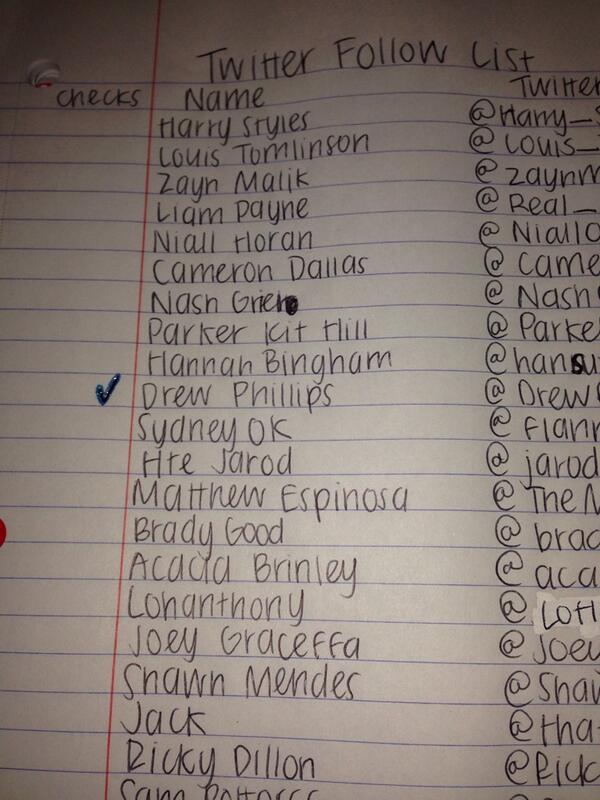 Twitter Follow List
checks Name Twitter
Harry Styles @Harry_S
Louis Tomlinson @Louis_
Zayn Malik @zaynm
Liam Payne @Real_
Niall Horan @Niallo
Cameron Dallas @came
Nash Grier @Nash
Parker Kit Hill @Parke
Hannah Bingham @hansu
✓ Drew Phillips @Drew
Sydney OK @Flann
Hte Jarod @jarod
Matthew Espinosa @The M
Brady Good @brad
Acacia Brinley @aca
Lohanthony @LOH
Joey Graceffa @Joey
Shawn Mendes @Shaw
Jack @tha
Ricky Dillon @Rick
Sam